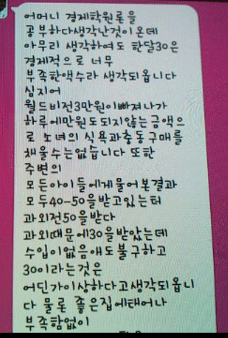 어머니 경제학원론을
공부하다생각난것이온데
아무리 생각하여도 한달30은
경제적으로 너무
부족한액수라 생각되옵니다
심지어
월등비전3만원이빠져나가
하루에만원도되지않는금액으
로 소녀의 식욕과충동구매를
채울수는없습니다 또한
주변의
모든아이들에게물어본결과
모두40-50을받고있는터
과외전50을받다
과외때문에30을받았는데
수입이없음애도불구하고
30이라는것은
어딘가이상하다고생각되옵니
다 물론 좋은집에태어나
부족함없이